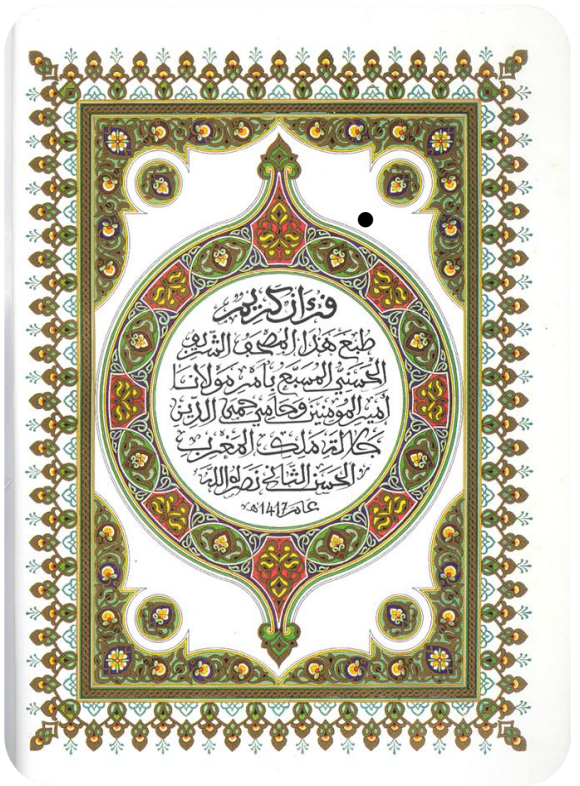 قرءان كريم
طبع هذا المصحف الشريف
الحسني المسبع بأمر مولانا
أمير المومنين وحامي حمى الدين
جلالة ملك المغرب
الحسن الثاني نصره الله
عام 1417هـ